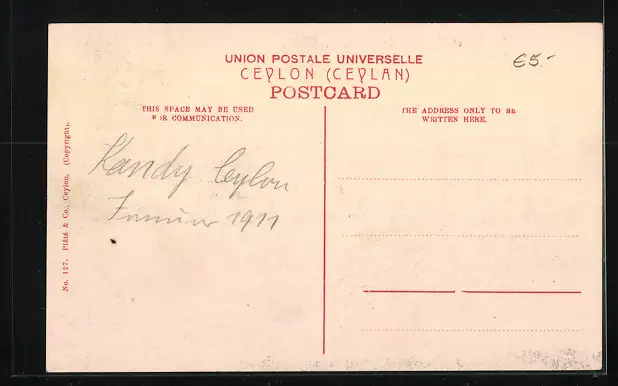 UNION POSTALE UNIVERSELLE
CEYLON (CEYLAN)
POSTCARD
€5.-
THIS SPACE MAY BE USED
FOR COMMUNICATION.
THE ADDRESS ONLY TO BE
WRITTEN HERE.
Kandy Ceylon
Januar 1911
No. 127. Plâté & Co., Ceylon. (Copyright).